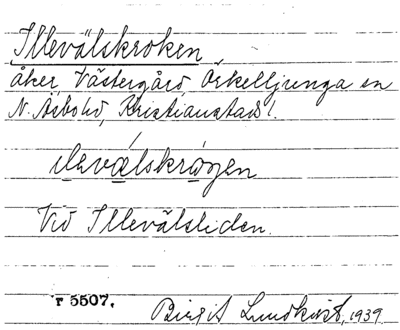 Illevälskroken
åker, Västergård, Örkelljunga sn
N. Åsbohd, Kristianstads l.
Vid Illevälsliden.
r 5507.
Birgit Lundkvist, 1939